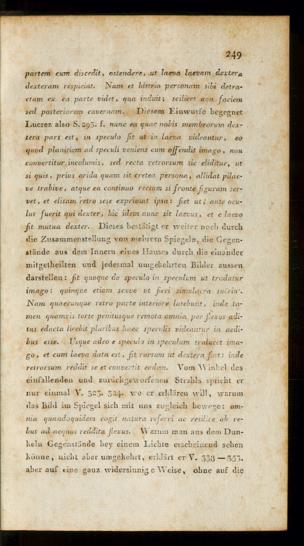 249
partem cum discedit, ostendere, ut laeva laevam dextera
dexteram respiciat. Nam et histrio personam sibi detra-
ctam ex ea parte videt, qua induit; scilicet non faciem
sed posteriorem cavernam. Diesem Einwurfe begegnet
Lucrez also S. 293. f. nunc ea quae nobis membrorum dex-
tera pars est, in speculo fit ut in laeva videatur, eo
quod planitiem ad speculi veniens cum offendit imago, non
convertitur incolumis, sed recta retrorsum sic eliditur, ut
si quis, prius arida quam sit cretea persona, allidat pilae-
ve trabive, atque ea continuo rectam si fronte figuram ser-
vet, et elisam retro sese exprimat ipsa: fiet ut; ante ocu-
lus fuerit qui dexter, hic idem nunc sit laevus, et e laevo
fit mutua dexter. Dieses bestätigt er weiter noch durch
die Zusammenstellung von mehrern Spiegeln, die Gegen-
stände aus dem Innern eines Hauses durch die einander
mitgetheilten und jedesmal umgekehrten Bilder aussen
darstellen: fit quoque de speculo in speculum ut tradatur
imago: quinque etiam sexve ut fieri simulacra suerint.
Nam quaecunque retro parte interiore latebunt, inde ta-
men quamvis torte penitusque remota omnia per flexus adi-
tus educta licebit pluribus haec speculis videantur in aedi-
bus esse. Usque adeo e speculo in speculum tralucet ima-
go, et cum laeva data est, fit rursum ut dextera fiat: inde
retrorsum reddit se et convertit eodem. Vom Winkel des
einfallenden und zurückgeworfenen Strahls spricht er
nur einmal V. 323. 324. wo er erklären will, warum
das Bild im Spiegel sich mit uns zugleich bewege: om-
nia quandoquidem cogit natura referri ac resilire ab re-
bus ad aequos reddita flexus. Warum man aus dem Dun-
keln Gegenstände bey einem Lichte erscheinend sehen
könne, nicht aber umgekehrt, erklärt er V. 338 — 353.
aber auf eine ganz widersinnige Weise, ohne auf die